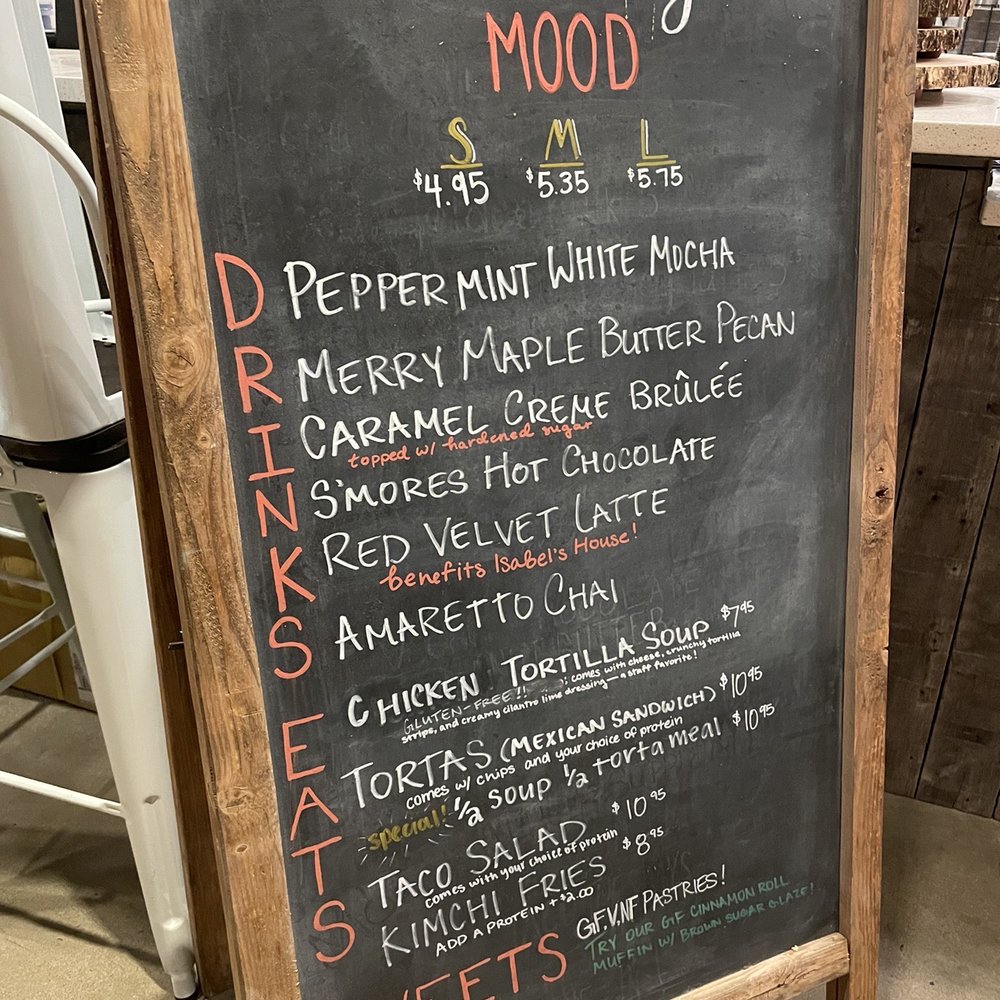 MOOD
S M L
$4.95 $5.35 $5.75
DRINKS
PEPPERMINT WHITE MOCHA
MERRY MAPLE BUTTER PECAN
CARAMEL CREME BRÛLÉE
topped w/ hardened sugar
S'MORES HOT CHOCOLATE
RED VELVET LATTE
benefits Isabel's House!
AMARETTO CHAI
EATS
CHICKEN TORTILLA SOUP $7.95
GLUTEN-FREE!! comes with cheese, crunchy tortilla
strips, and creamy cilantro lime dressing—a staff favorite!
TORTAS (MEXICAN SANDWICH) $10.95
comes w/ chips and your choice of protein
special! 1/2 soup 1/2 torta meal $10.95
TACO SALAD $10.95
comes with your choice of protein
KIMCHI FRIES $8.95
ADD A PROTEIN + $2.00
GF, V, NF PASTRIES!
TRY OUR GF CINNAMON ROLL
MUFFIN W/ BROWN SUGAR GLAZE!